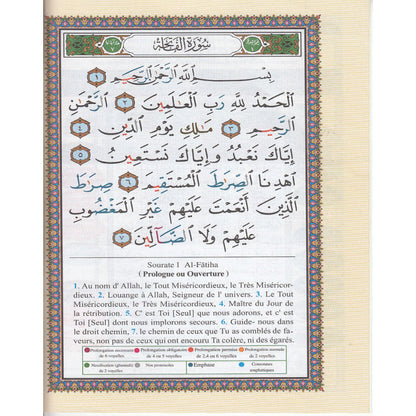 سُورَةُ الفَاتِحَةِ
بِسْمِ اللَّهِ الرَّحْمَٰنِ الرَّحِيمِ ١
الْحَمْدُ لِلَّهِ رَبِّ الْعَالَمِينَ ٢ الرَّحْمَٰنِ
الرَّحِيمِ ٣ مَالِكِ يَوْمِ الدِّينِ ٤
إِيَّاكَ نَعْبُدُ وَإِيَّاكَ نَسْتَعِينُ ٥
اهْدِنَا الصِّرَاطَ الْمُسْتَقِيمَ ٦ صِرَاطَ
الَّذِينَ أَنْعَمْتَ عَلَيْهِمْ غَيْرِ الْمَغْضُوبِ
عَلَيْهِمْ وَلَا الضَّالِّينَ ٧
Sourate 1 Al-Fātiha
( Prologue ou Ouverture )
1. Au nom d' Allah, le Tout Miséricordieux, le Très Miséricor-
dieux. 2. Louange à Allah, Seigneur de l' univers. 3. Le Tout
Miséricordieux, le Très Miséricordieux, 4. Maître du Jour de
la rétribution. 5. C' est Toi [Seul] que nous adorons, et c' est
Toi [Seul] dont nous implorons secours. 6. Guide- nous dans
le droit chemin, 7. le chemin de ceux que Tu as comblés de fa-
veurs, non pas de ceux qui ont encouru Ta colère, ni des égarés.
Prolongation nécessaire de 6 voyelles Prolongation obligatoire de 4 ou 5 voyelles Prolongation permise de 2,4 ou 6 voyelles Prolongation normale de 2 voyelles
Nasalisation (ghunnah) de 2 voyelles Non prononcées Emphase Consonnes emphatiques